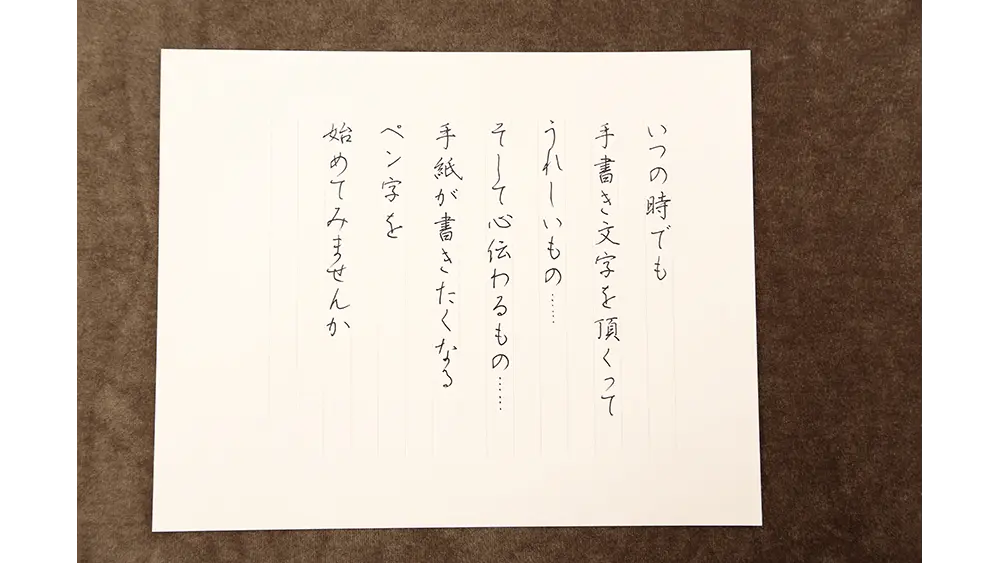 いつの時でも
手書き文字を頂くって
うれしいもの……
そして心伝わるもの……
手紙が書きたくなる
ペン字を
始めてみませんか